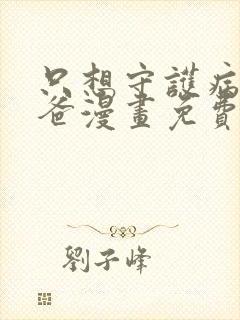 只想守護病
爸漫畫免費
劉子峰